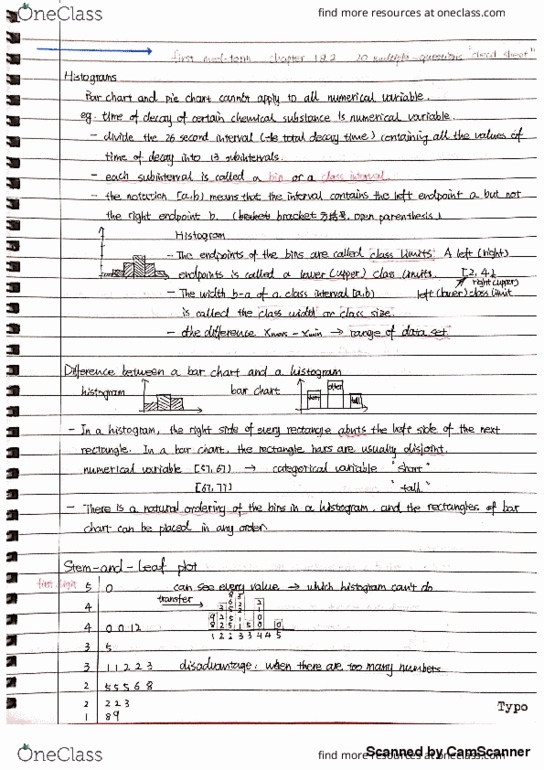 OneClass
find more resources at oneclass.com
first mid-term chapter 1&2 20 multiple-questions "cheat sheet"
Histograms
Bar chart and pie chart cannot apply to all numerical variable.
eg. time of decay of certain chemical substance is numerical variable.
- divide the 26 second interval (the total decay time) containing all the values of
time of decay into 13 subintervals.
- each subinterval is called a bin or a class interval
- the notation [a,b) means that the interval contains the left endpoint a but not
the right endpoint b. ( bracket 方括号, open parenthesis)
Histogram
- The endpoints of the bins are called class limits. A left (right)
endpoints is called a lower (upper) class limits. [2, 4)
right (upper)
- The width b-a of a class interval [a,b) left (lower) class limit
is called the class width or class size.
- the difference Xmax - Xmin → range of data set
Difference between a bar chart and a histogram
histogram bar chart
- In a histogram, the right side of every rectangle abuts the left side of the next
rectangle. In a bar chart, the rectangle bars are usually disjoint.
numerical variable [57, 67) → categorical variable "short"
[67, 77) "tall"
- There is a natural ordering of the bins in a histogram, and the rectangles of bar
chart can be placed in any order.
Stem-and-leaf plot
first digit 5 0 can see every value → which histogram can't do
transfer
4
4 0 0 1 2
1 2 2 3 3 4 4 5
3 5
3 1 1 2 2 3 disadvantage: when there are too many numbers
2 5 5 5 6 8
2 2 2 3
1 8 9
Typo
OneClass
find more resources at oneclass.com
Scanned by CamScanner